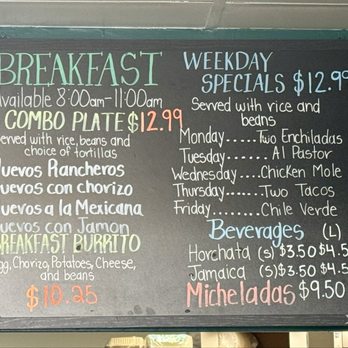 BREAKFAST
Available 8:00am-11:00am
COMBO PLATE $12.99
Served with rice, beans and
choice of tortillas
Huevos Rancheros
Huevos con chorizo
Huevos a la Mexicana
Huevos con Jamon
BREAKFAST BURRITO
Egg, Chorizo, Potatoes, Cheese,
and beans
$10.25
WEEKDAY
SPECIALS $12.99
Served with rice and
beans
Monday.....Two Enchiladas
Tuesday......Al Pastor
Wednesday...Chicken Mole
Thursday......Two Tacos
Friday.........Chile Verde
Beverages (L)
Horchata (s) $3.50 $4.5
Jamaica (s) $3.50 $4.5
Micheladas $9.50